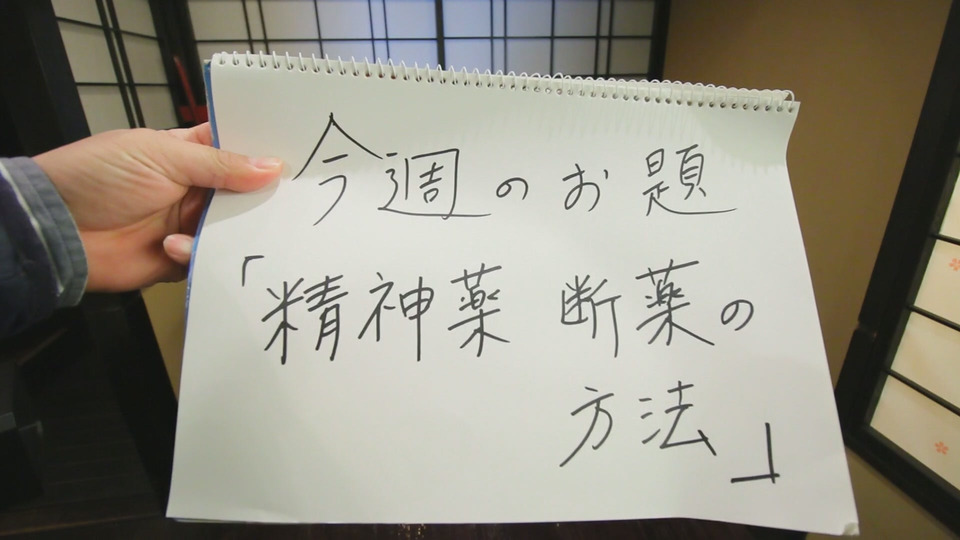 今週のお題
「精神薬 断薬の
方法」